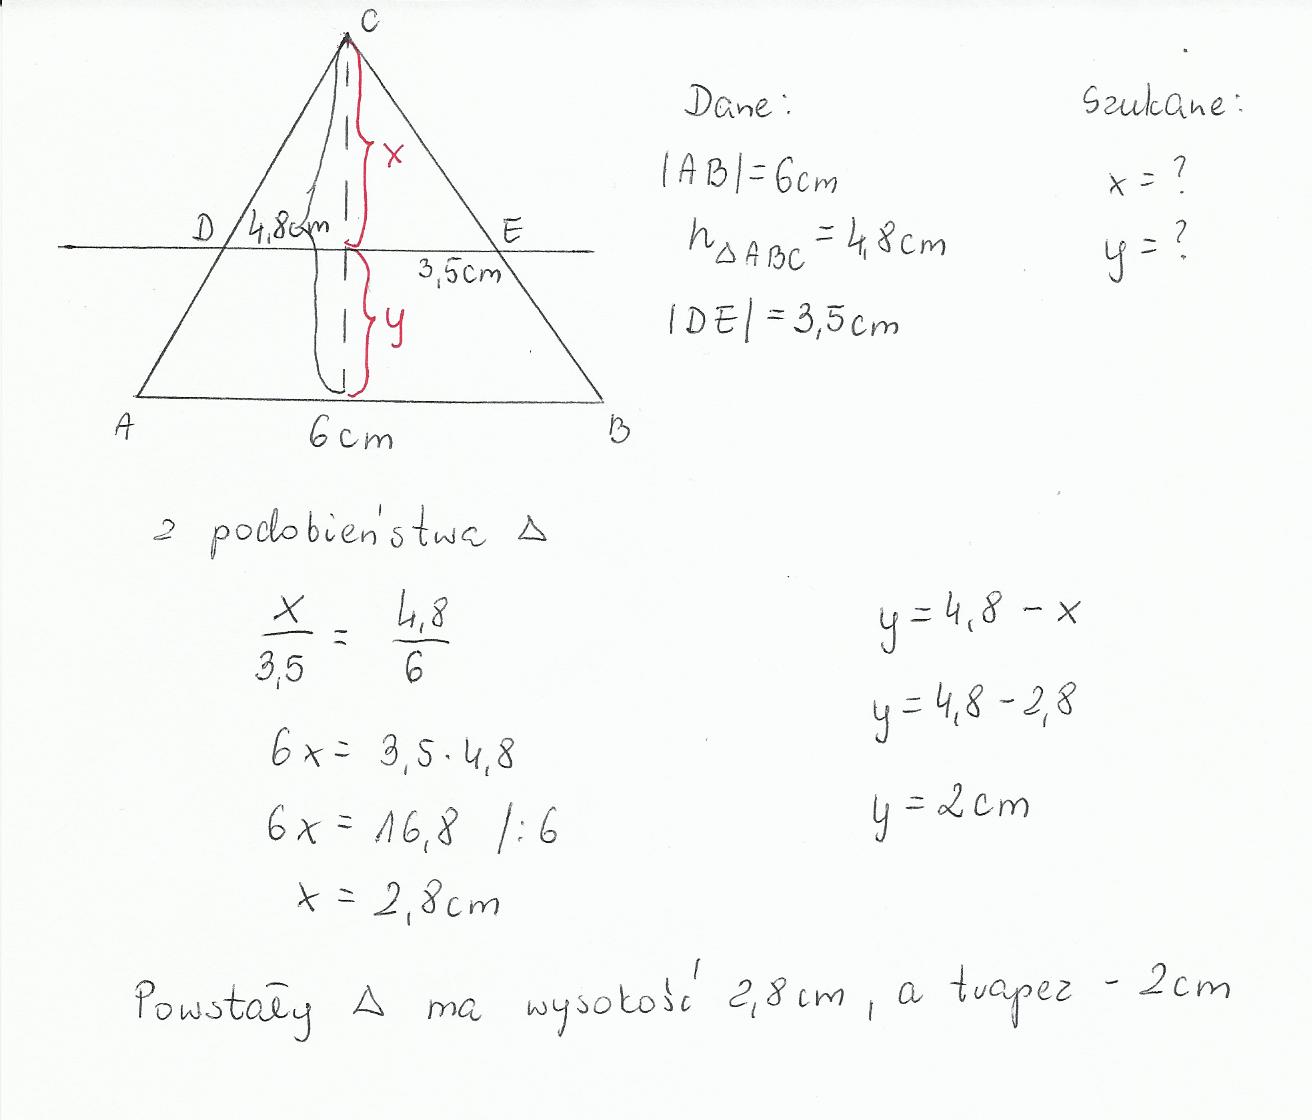 C
x
D 4,8cm E
3,5cm
y
A B
6cm
Dane:
|AB|=6cm
h△ABC = 4,8cm
|DE| = 3,5cm
Szukane:
x = ?
y = ?
z podobieństwa △
x/3,5 = 4,8/6
6x = 3,5·4,8
6x = 16,8 /:6
x = 2,8cm
y = 4,8 - x
y = 4,8 - 2,8
y = 2cm
Powstały △ ma wysokość 2,8cm, a trapez - 2cm